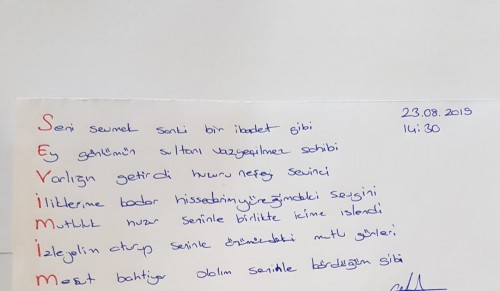 23.08.2019
14:30
Seni sevmek sanki bir ibadet gibi
Ey gönlümün sultanı vazgeçilmez sahibi
Varlığın getirdi huzuru neşeyi sevinci
İliklerime kadar hissederim yüreğimdeki sevgini
Mutluluk huzur seninle birlikte içime işlendi
İzleyelim oturup seninle önümüzdeki mutlu günleri
Mesut bahtiyar olalım seninle gibi